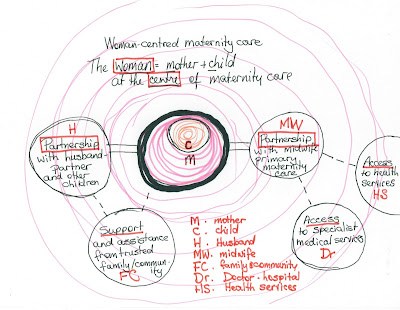 Woman-centred maternity care
The Woman = mother + child
at the centre of maternity care
H
Partnership
with husband-
Partner
and other
children
C
M
MW
Partnership
with midwife
primary
maternity
care
Access
to health
services
HS
Support
and assistance
from trusted
family/commun-
ity
FC
Access
to specialist
medical services
Dr
M. mother
C. child
H. Husband
MW. midwife
FC. family & community
Dr. Doctor - hospital
HS. Health services